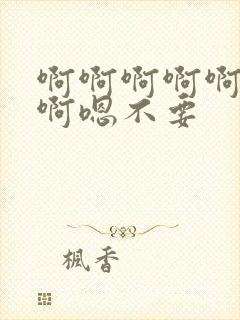 啊啊啊啊啊
啊嗯不要
楓香